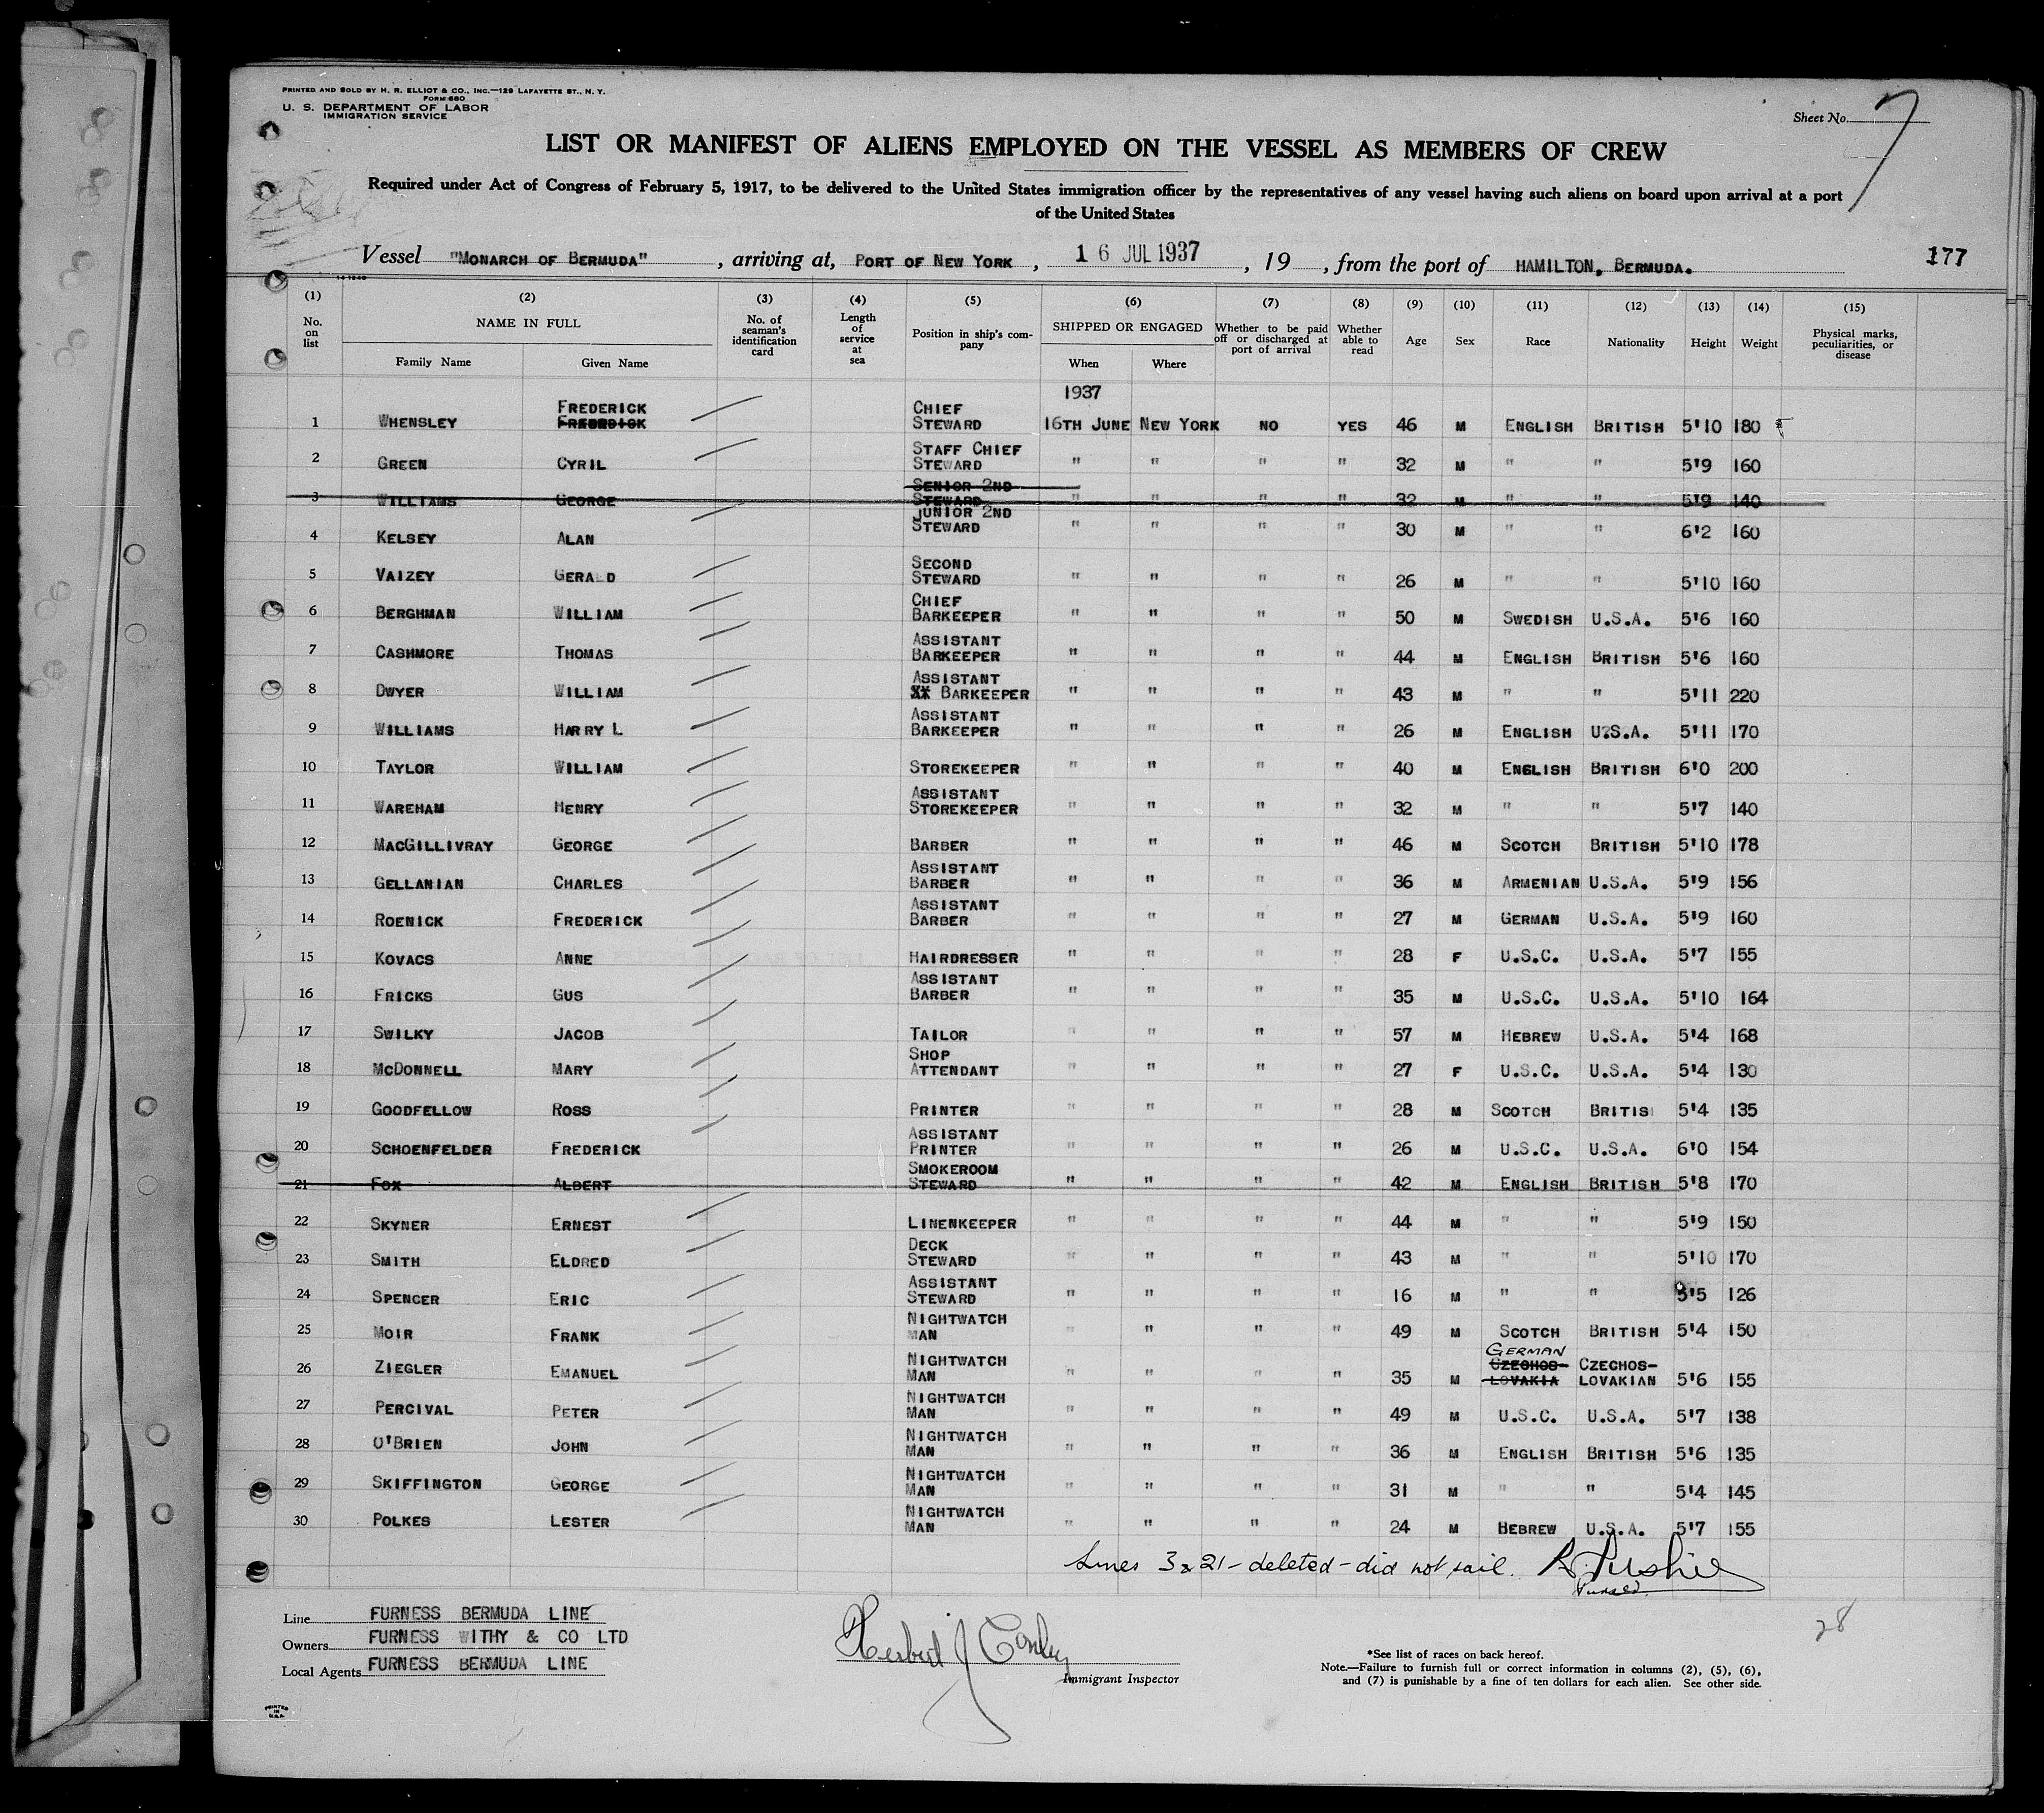 PRINTED AND SOLD BY H. R. ELLIOT & CO., INC.—129 LAFAYETTE ST., N. Y.
FORM 680
U. S. DEPARTMENT OF LABOR
IMMIGRATION SERVICE
Sheet No. 7
LIST OR MANIFEST OF ALIENS EMPLOYED ON THE VESSEL AS MEMBERS OF CREW
Required under Act of Congress of February 5, 1917, to be delivered to the United States immigration officer by the representatives of any vessel having such aliens on board upon arrival at a port
of the United States
Vessel "MONARCH OF BERMUDA", arriving at, PORT OF NEW YORK, 16 JUL 1937, 19 , from the port of HAMILTON, BERMUDA. 177
(1) (2) (3) (4) (5) (6) (7) (8) (9) (10) (11) (12) (13) (14) (15)
No. on list NAME IN FULL Family Name Given Name No. of seaman's identification card Length of service at sea Position in ship's company SHIPPED OR ENGAGED When Where Whether to be paid off or discharged at port of arrival Whether able to read Age Sex Race Nationality Height Weight Physical marks, peculiarities, or disease
1937
1 WHENSLEY FREDERICK FREDRICK CHIEF STEWARD 16TH JUNE NEW YORK NO YES 46 M ENGLISH BRITISH 5'10 180
2 GREEN CYRIL STAFF CHIEF STEWARD " " " " 32 M " " 5'9 160
3 WILLIAMS GEORGE SENIOR 2ND STEWARD " " " " 32 M " " 5'9 140
4 KELSEY ALAN JUNIOR 2ND STEWARD " " " " 30 M " " 6'2 160
5 VAIZEY GERALD SECOND STEWARD " " " " 26 M " " 5'10 160
6 BERGHMAN WILLIAM CHIEF BARKEEPER " " " " 50 M SWEDISH U.S.A. 5'6 160
7 CASHMORE THOMAS ASSISTANT BARKEEPER " " " " 44 M ENGLISH BRITISH 5'6 160
8 DWYER WILLIAM ASSISTANT XX BARKEEPER " " " " 43 M " " 5'11 220
9 WILLIAMS HARRY L ASSISTANT BARKEEPER " " " " 26 M ENGLISH U?S.A. 5'11 170
10 TAYLOR WILLIAM STOREKEEPER " " " " 40 M ENGLISH BRITISH 6'0 200
11 WAREHAM HENRY ASSISTANT STOREKEEPER " " " " 32 M " " 5'7 140
12 MACGILLIVRAY GEORGE BARBER " " " " 46 M SCOTCH BRITISH 5'10 178
13 GELLANIAN CHARLES ASSISTANT BARBER " " " " 36 M ARMENIAN U.S.A. 5'9 156
14 ROENICK FREDERICK ASSISTANT BARBER " " " " 27 M GERMAN U.S.A. 5'9 160
15 KOVACS ANNE HAIRDRESSER " " " " 28 F U.S.C. U.S.A. 5'7 155
16 FRICKS GUS ASSISTANT BARBER " " " " 35 M U.S.C. U.S.A. 5'10 164
17 SWILKY JACOB TAILOR " " " " 57 M HEBREW U.S.A. 5'4 168
18 MCDONNELL MARY SHOP ATTENDANT " " " " 27 F U.S.C. U.S.A. 5'4 130
19 GOODFELLOW ROSS PRINTER " " " " 28 M SCOTCH BRITIS 5'4 135
20 SCHOENFELDER FREDERICK ASSISTANT PRINTER " " " " 26 M U.S.C. U.S.A. 6'0 154
21 FOX ALBERT SMOKEROOM STEWARD " " " " 42 M ENGLISH BRITISH 5'8 170
22 SKYNER ERNEST LINENKEEPER " " " " 44 M " " 5'9 150
23 SMITH ELDRED DECK STEWARD " " " " 43 M " " 5'10 170
24 SPENCER ERIC ASSISTANT STEWARD " " " " 16 M " " 5'5 126
25 MOIR FRANK NIGHTWATCH MAN " " " " 49 M SCOTCH BRITISH 5'4 150
26 ZIEGLER EMANUEL NIGHTWATCH MAN " " " " 35 M GERMAN CZECHOS-LOVAKIA CZECHOS-LOVAKIAN 5'6 155
27 PERCIVAL PETER NIGHTWATCH MAN " " " " 49 M U.S.C. U.S.A. 5'7 138
28 O'BRIEN JOHN NIGHTWATCH MAN " " " " 36 M ENGLISH BRITISH 5'6 135
29 SKIFFINGTON GEORGE NIGHTWATCH MAN " " " " 31 M " " 5'4 145
30 POLKES LESTER NIGHTWATCH MAN " " " " 24 M BEBREW U.S.A. 5'7 155
Lines 3 & 21 – deleted – did not sail.
Purser
Line FURNESS BERMUDA LINE
Owners FURNESS WITHY & CO LTD
Local Agents FURNESS BERMUDA LINE
Herbert J Conley
Immigrant Inspector
28
*See list of races on back hereof.
Note.—Failure to furnish full or correct information in columns (2), (5), (6),
and (7) is punishable by a fine of ten dollars for each alien. See other side.
PRINTED IN U.S.A.